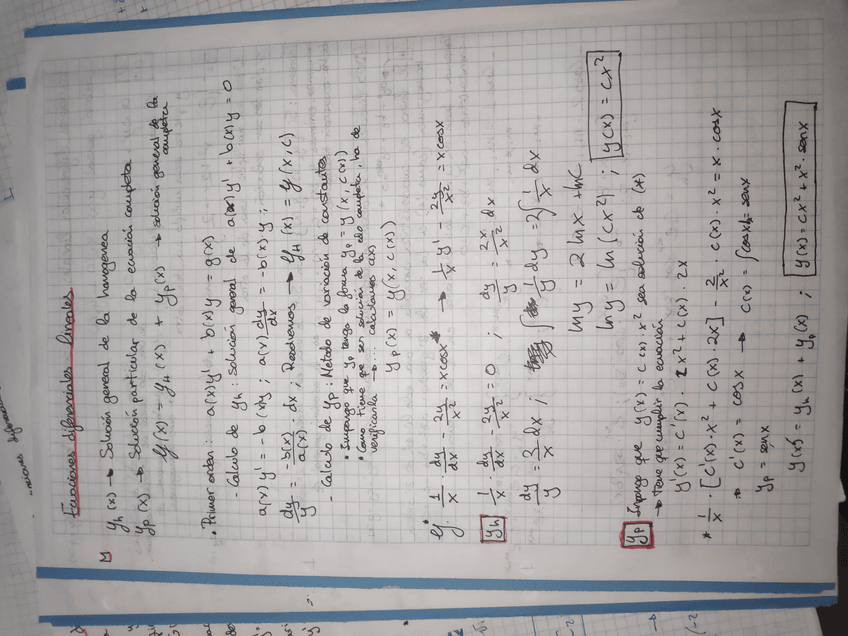 Ecuaciones diferenciales lineales
yh (x) → Solución general de la homogénea
yp (x) → Solución particular de la ecuación completa
y(x) = yH (x) + yp (x) → solución general de la completa
• Primer orden: a(x)y' + b(x)y = g(x)
- Calculo de yh: solución general de a(x)y' + b(x)y = 0
a(x) y' = -b(x)y ; a(x) dy/dx = -b(x) y ;
dy/y = -b(x)/a(x) · dx ; Resolvemos → yH (x) = y(x, c)
- Calculo de yp: Método de variación de constantes
• Supongo que yp tenga la forma yp = y(x, c(x))
• Como tiene que ser solución de la edo completa, ha de
verificarla → ... calculamos c(x)
yp(x) = y(x, c(x))
ej 1/x · dy/dx - 2y/x² = xcosx → 1/x y' - 2y/x² = xcosx
yh 1/x · dy/dx - 2y/x² = 0 ; dy/y = 2x/x² dx
dy/y = 2/x dx ; ∫ 1/y dy = 2∫ 1/x dx
ln y = 2 ln x + ln C
ln y = ln (Cx²) ; y(x) = Cx²
yp Supongo que y(x) = c(x) · x² sea solución de (*)
→ tiene que cumplir la ecuación
y'(x) = c'(x) · x² + c(x) · 2x
* 1/x · [c'(x) · x² + c(x) · 2x] - 2/x² · c(x) · x² = x · cosx
→ c'(x) = cosx → c(x) = ∫cosxdx = senx
yp = senx
y(x) = yh(x) + yp(x) ; y(x) = Cx² + x² · senx